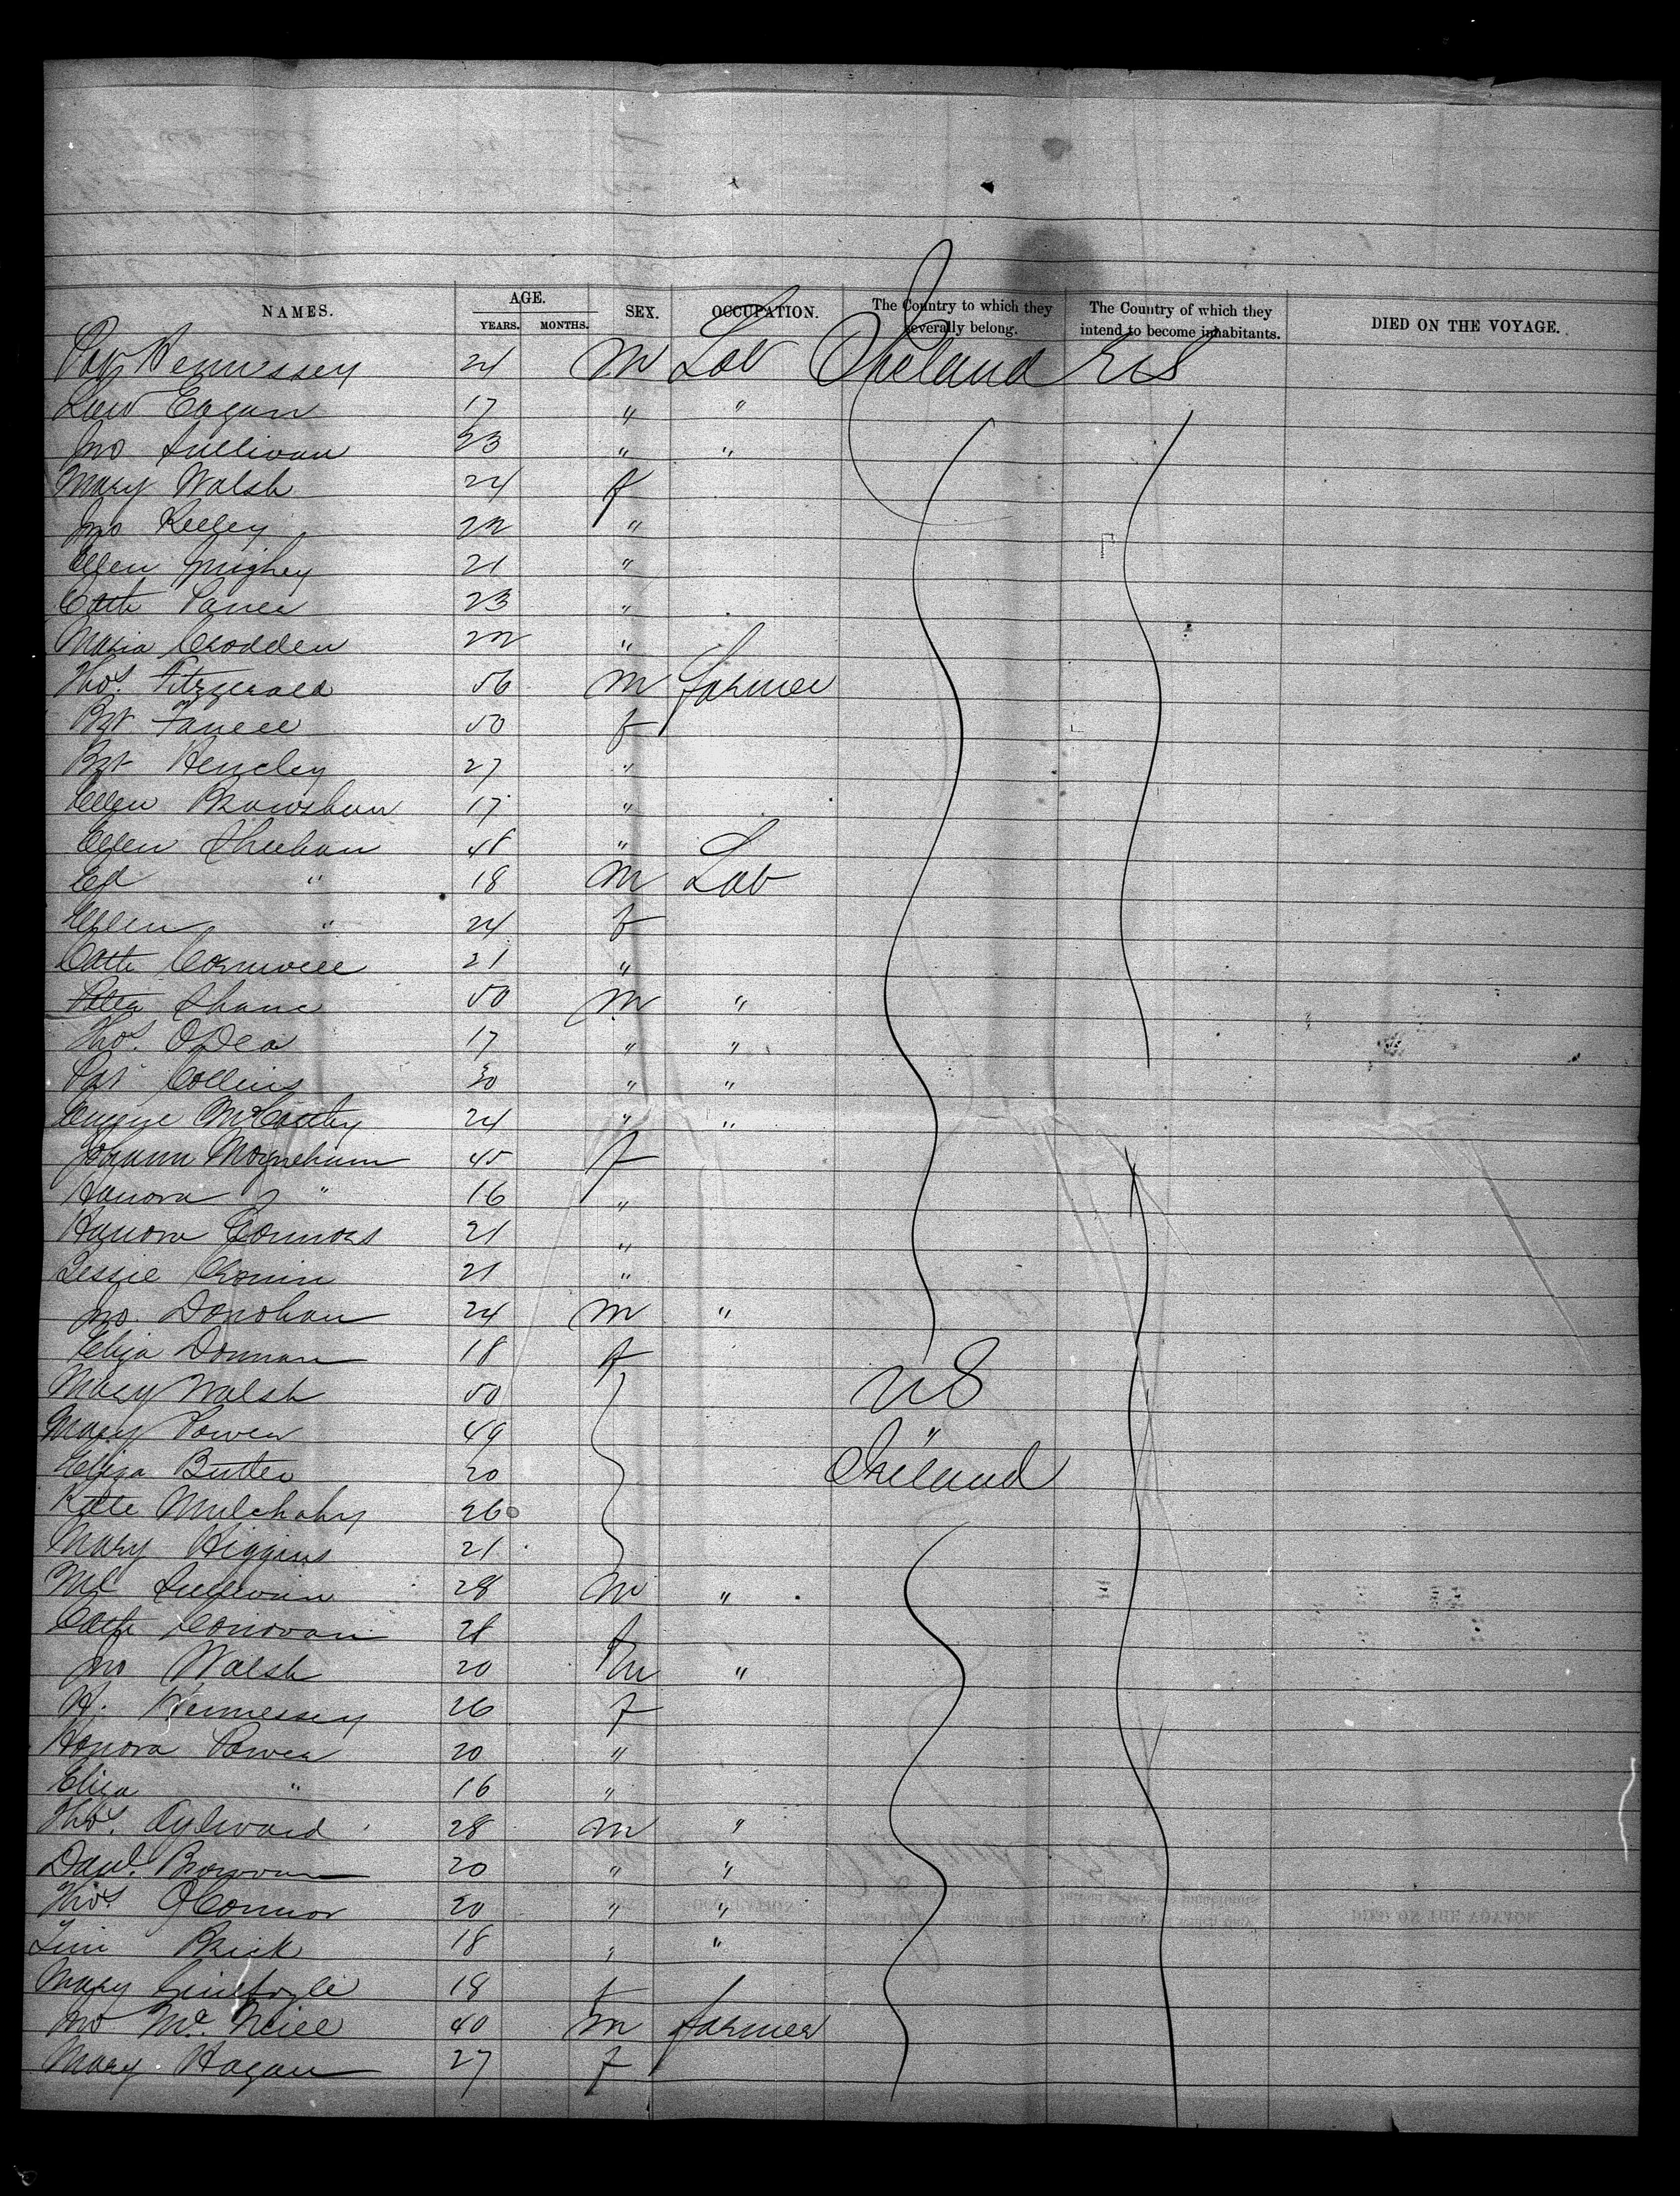 NAMES. AGE. YEARS. MONTHS. SEX. OCCUPATION. The Country to which they severally belong. The Country of which they intend to become inhabitants. DIED ON THE VOYAGE.
Pat Hennessey 24 M Lab Ireland US
Law Eagan 17 " "
Jno Sullivan 23 " "
Mary Walsh 24 f
Jno Kelley 22 "
Ellen 21 "
Cath 23 "
Maria Crodden 22 "
Thos. Fitzgerald 56 M farmer
Bgt 50 f
Bgt Hensley 27 "
Ellen 17 "
Ellen Sheehan 48 "
Ed " 18 M Lab
Ellen " 24 f
Cath Cornwell 21 "
Shane 50 M "
Thos. ODea 17 " "
Pat Collins 30 " "
Eugene McCarthy 24 " "
Johann Moynehum 45 f
Hanora " 16 "
Hanora Connors 21 "
Lessie Cronin 21 "
Jno. Donohan 24 M "
Eliza Donnan 18 f
Mary Walsh 50 US
Mary Power 49 "
Eliza Butler 20 Ireland
Kate Mulchahy 26
Mary Higgins 21
Ml Sullivan 28 M "
Cath Donovan 21 f
Jno Walsh 20 M "
H. Hennessey 26 f
Honora Power 20 "
Eliza " 16 "
Thos. Aylward 28 M "
Danl. 20 " "
Thos. OConnor 20 " "
Tim Brick 18 " "
Mary 18 f
Jno Mc.Neill 40 M farmer
Mary Hagan 27 f